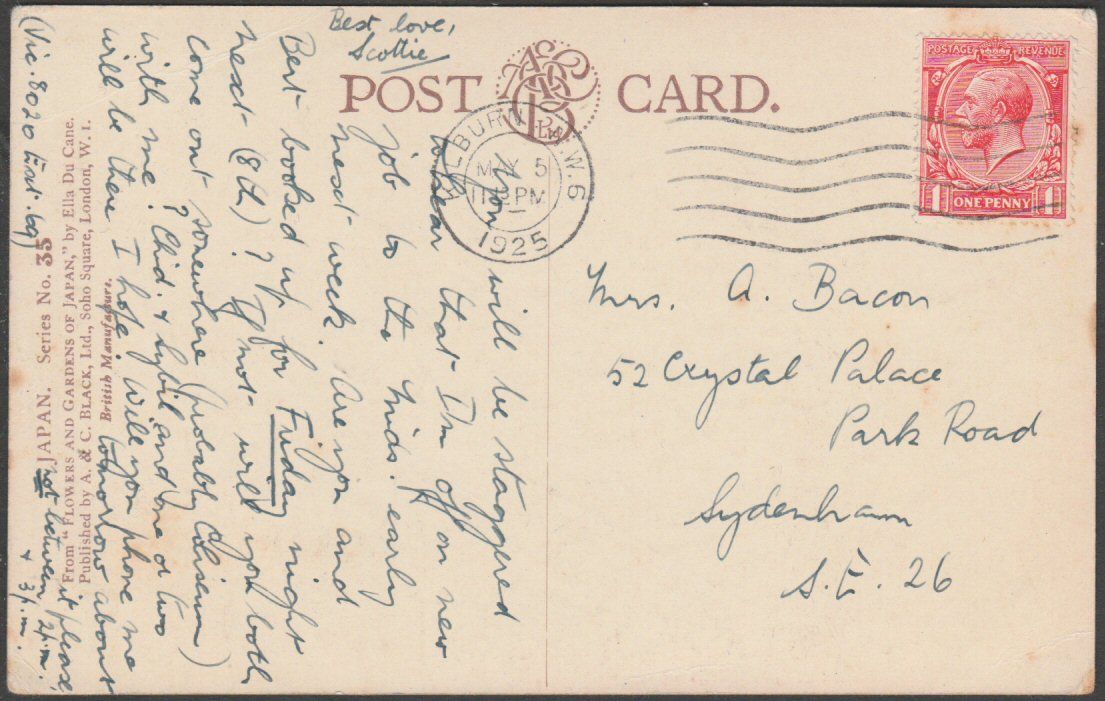 POST CARD.
POSTAGE REVENUE
1D ONE PENNY 1D
KILBURN N.W.6
MY 5
PM
1925
Mrs. A. Bacon
52 Crystal Palace
Park Road
Sydenham
S.E. 26
You will be staggered
to hear that I'm off on new
job to the Mids. early
next week. Are you and
Bert booked up for Friday night
next (8th)? If not will you both
come out somewhere (probably Coliseum)
with me? Chid. & Sybil and one or two
will be there I hope. Will you phone me
tomorrow about it please,
not between 2p.m.
& 3p.m.
(Vic. 8020 Ext. 69)
Best love,
Scottie
JAPAN. Series No. 35
From "FLOWERS AND GARDENS OF JAPAN," by Ella Du Cane.
Published by A. & C. BLACK, Ltd., Soho Square, London, W. 1.
British Manufacture.